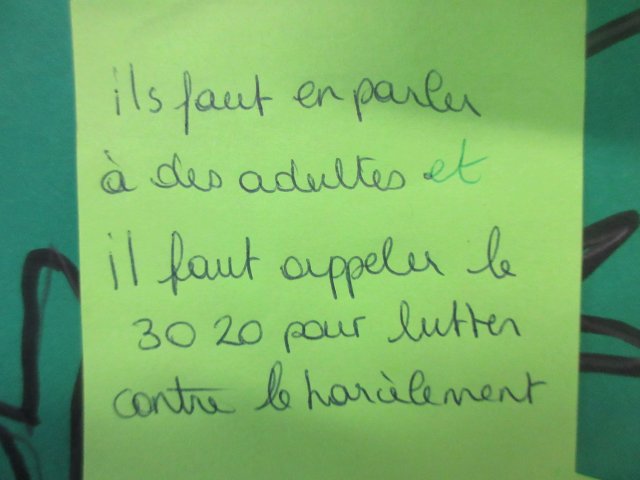 ils faut en parler
à des adultes et
il faut appeler le
30 20 pour lutter
contre le harcèlement